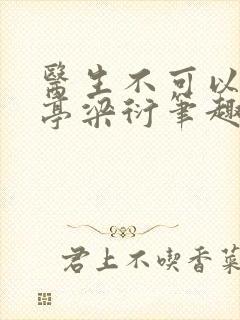 醫生不可以
亭梁衍筆趣
君上不喫香菜